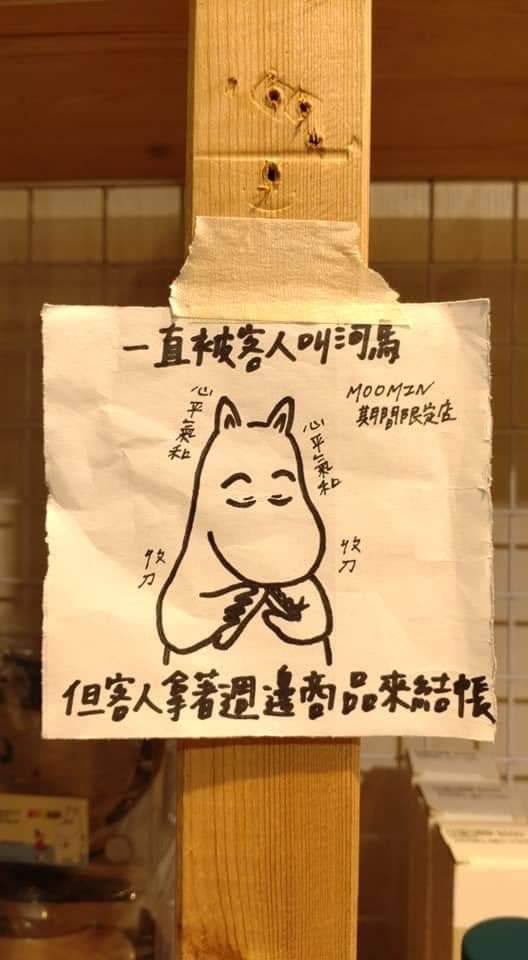 一直被客人叫河馬
MOOMIN
期間限定店
心平氣和
心平氣和
收刀
收刀
但客人拿著週邊商品來結帳